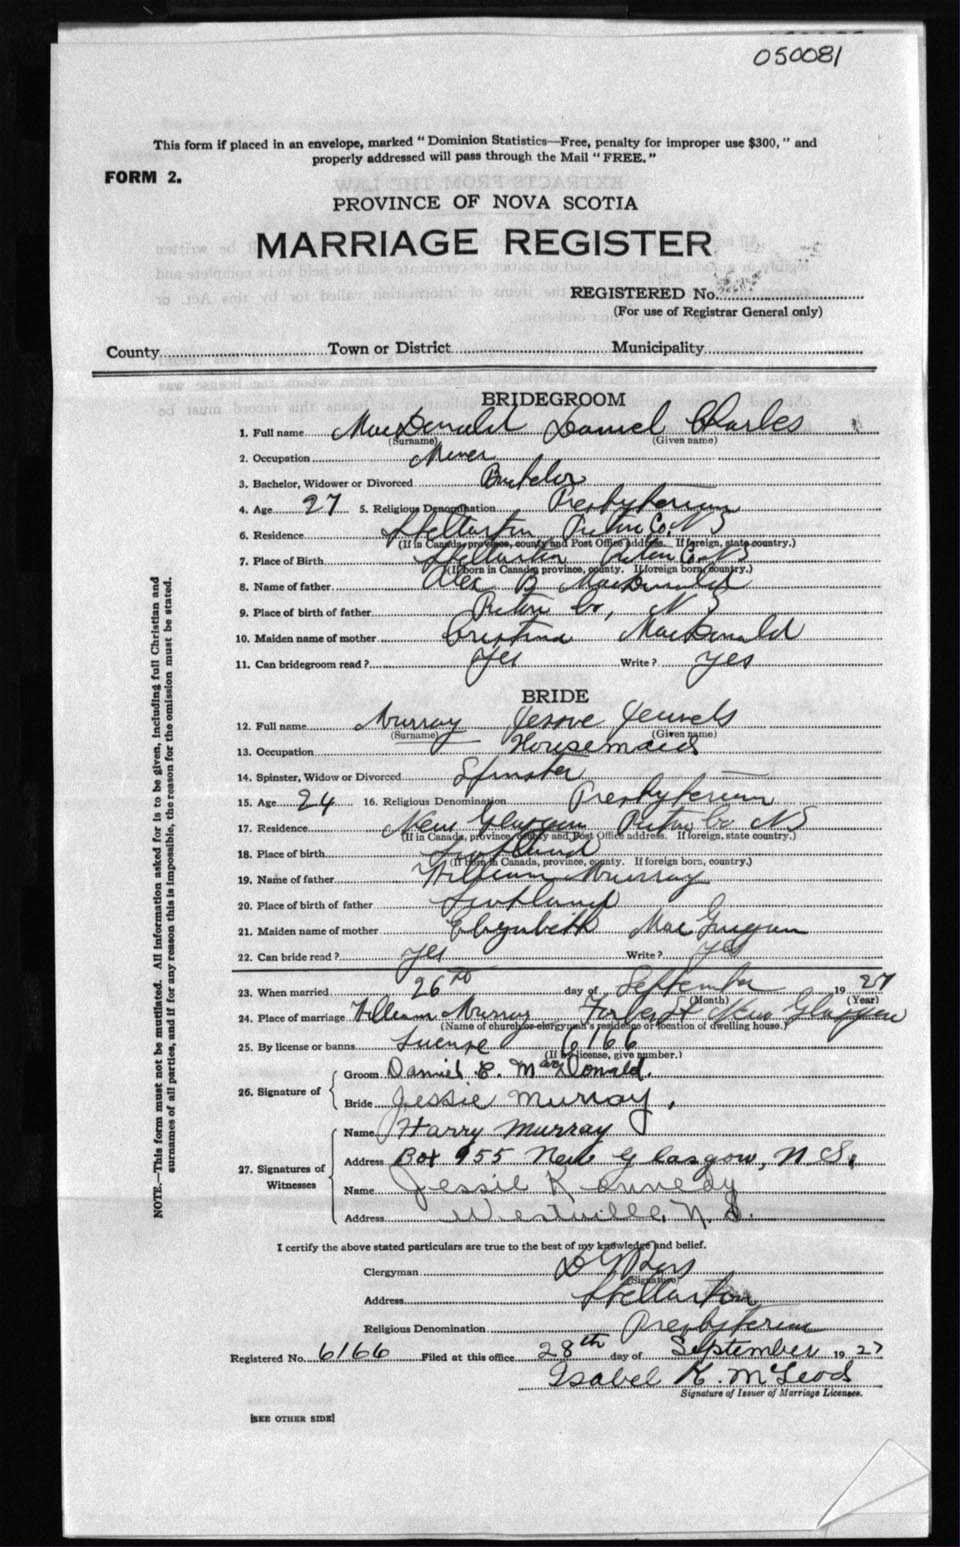 050081
This form if placed in an envelope, marked "Dominion Statistics—Free, penalty for improper use $300," and
properly addressed will pass through the Mail "FREE."
FORM 2.
PROVINCE OF NOVA SCOTIA
MARRIAGE REGISTER
REGISTERED No.
(For use of Registrar General only)
County Town or District Municipality
BRIDEGROOM
1. Full name MacDonald Daniel Charles
(Surname) (Given name)
2. Occupation Miner
3. Bachelor, Widower or Divorced Bachelor
4. Age 27 5. Religious Denomination Presbyterian
6. Residence Stellarton Pictou Co. NS
(If in Canada, province, county and Post Office address. If foreign, state country.)
7. Place of Birth Stellarton Pictou Co NS
(If born in Canada, province, county. If foreign born, country.)
8. Name of father Alex B MacDonald
9. Place of birth of father Pictou Co, NS
10. Maiden name of mother Cristina MacDonald
11. Can bridegroom read? Yes Write? Yes
BRIDE
12. Full name Murray Jessie
(Surname) (Given name)
13. Occupation Housemaid
14. Spinster, Widow or Divorced Spinster
15. Age 24 16. Religious Denomination Presbyterian
17. Residence New Glasgow Pictou Co NS
(If in Canada, province, county and Post Office address. If foreign, state country.)
18. Place of birth Scotland
(If born in Canada, province, county. If foreign born, country.)
19. Name of father William Murray
20. Place of birth of father Scotland
21. Maiden name of mother Elizabeth
22. Can bride read? Yes Write? Yes
23. When married 26th day of September 1927
(Month) (Year)
24. Place of marriage William Murray Forbes St New Glasgow
(Name of church or clergyman's residence or location of dwelling house.)
25. By license or banns License 6166
(If by license, give number.)
26. Signature of
Groom Daniel C. MacDonald.
Bride Jessie Murray.
27. Signatures of Witnesses
Name Harry Murray
Address Box 955 New Glasgow, N.S.
Name Jessie Kennedy
Address Westville, N.S.
I certify the above stated particulars are true to the best of my knowledge and belief.
Clergyman
(Signature)
Address Stellarton
Religious Denomination Presbyterian
Registered No. 6166 Filed at this office 28th day of September 1927
Isabel K. McLeod
Signature of Issuer of Marriage Licenses.
[SEE OTHER SIDE]
NOTE.—This form must not be mutilated. All information asked for is to be given, including full Christian and
surnames of all parties, and if for any reason this is impossible, the reason for the omission must be stated.